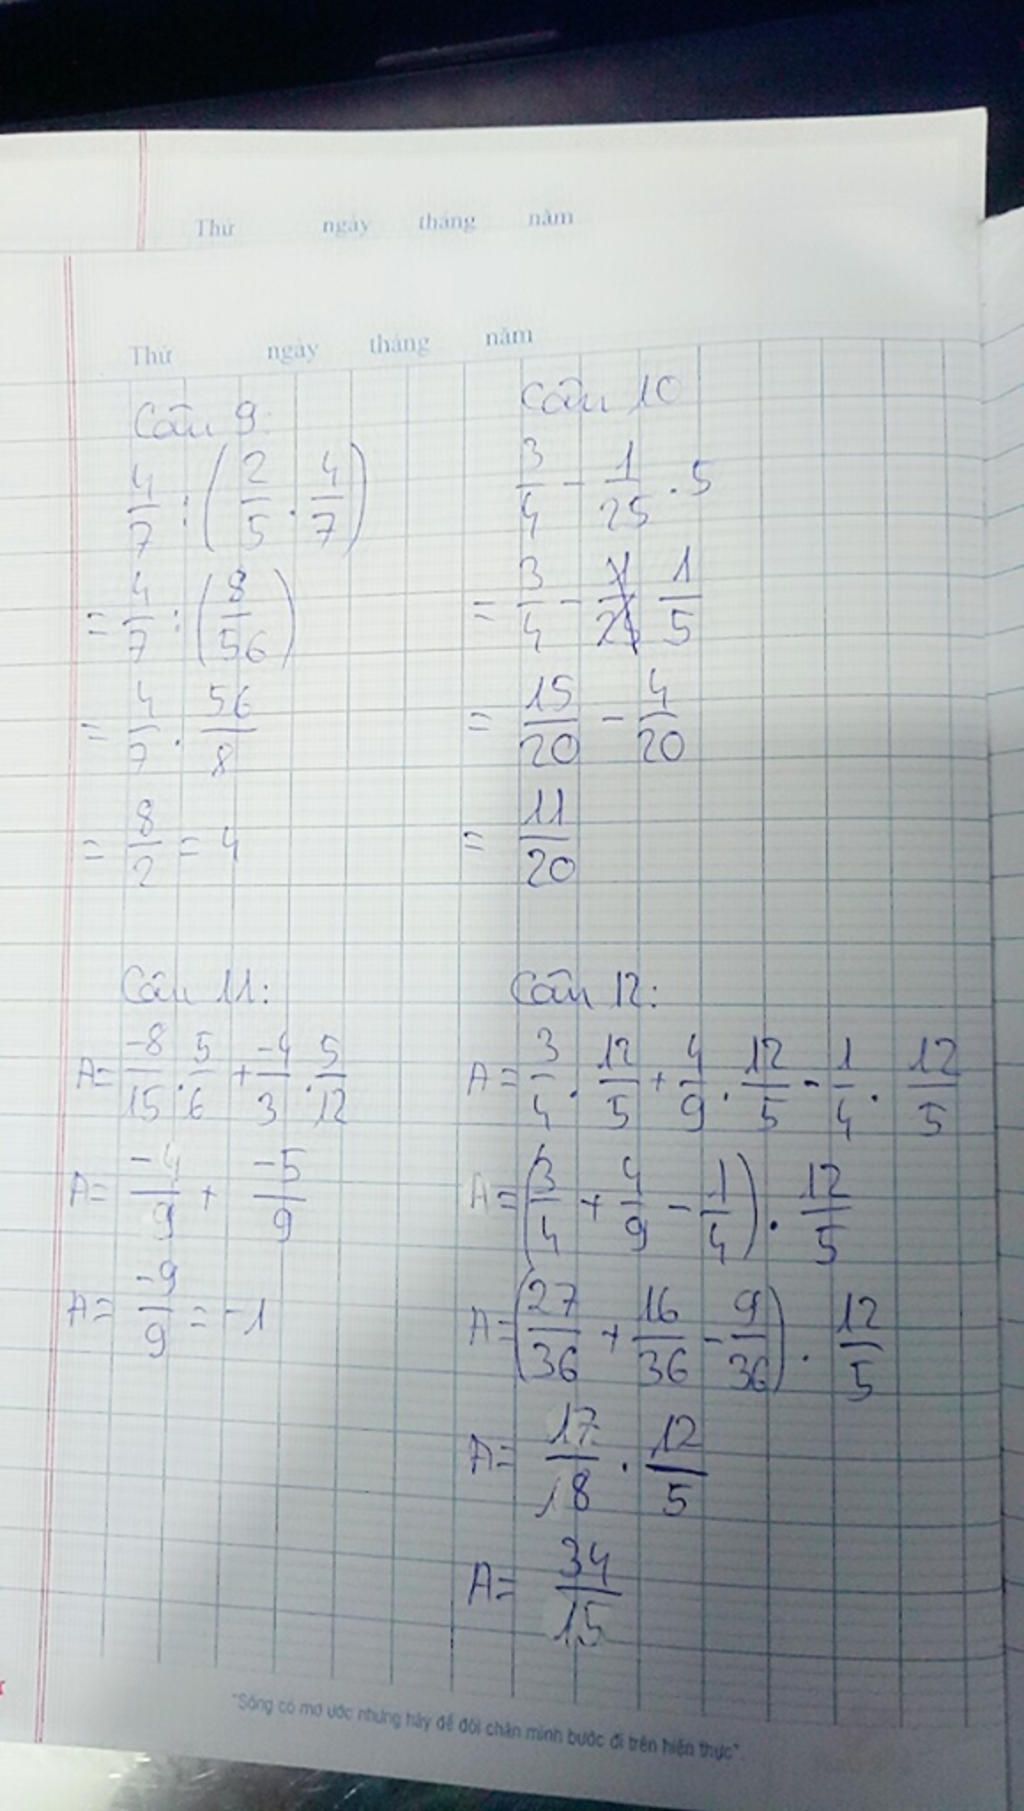 Thứ ngày tháng năm
Thứ ngày tháng năm
Câu 9:
4/7 : (2/5 . 4/7)
= 4/7 : (8/56)
= 4/7 . 56/8
= 8/2 = 4
Câu 10
3/4 - 1/25 . 5
= 3/4 - 1/5
= 15/20 - 4/20
= 11/20
Câu 11:
A= -8/15 . 5/6 + -4/3 . 5/12
A= -4/9 + -5/9
A= -9/9 = -1
Câu 12:
A= 3/4 . 12/5 + 4/9 . 12/5 - 1/4 . 12/5
A= (3/4 + 4/9 - 1/4) . 12/5
A= (27/36 + 16/36 - 9/36) . 12/5
A= 17/18 . 12/5
A= 34/15
"Sống có mơ ước nhưng hãy để đôi chân mình bước đi trên hiện thực".